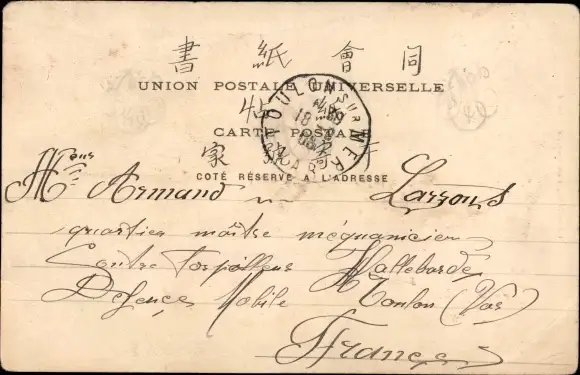 書紙會同
UNION POSTALE UNIVERSELLE
CARTE POSTALE
家
COTÉ RÉSERVÉ A L'ADRESSE
TOULON SUR MER
18
VAR
Armand
quartier maître méquanicien
Contre Torpilleur Hallebarde
Defence Mobile Toulon (Var)
France